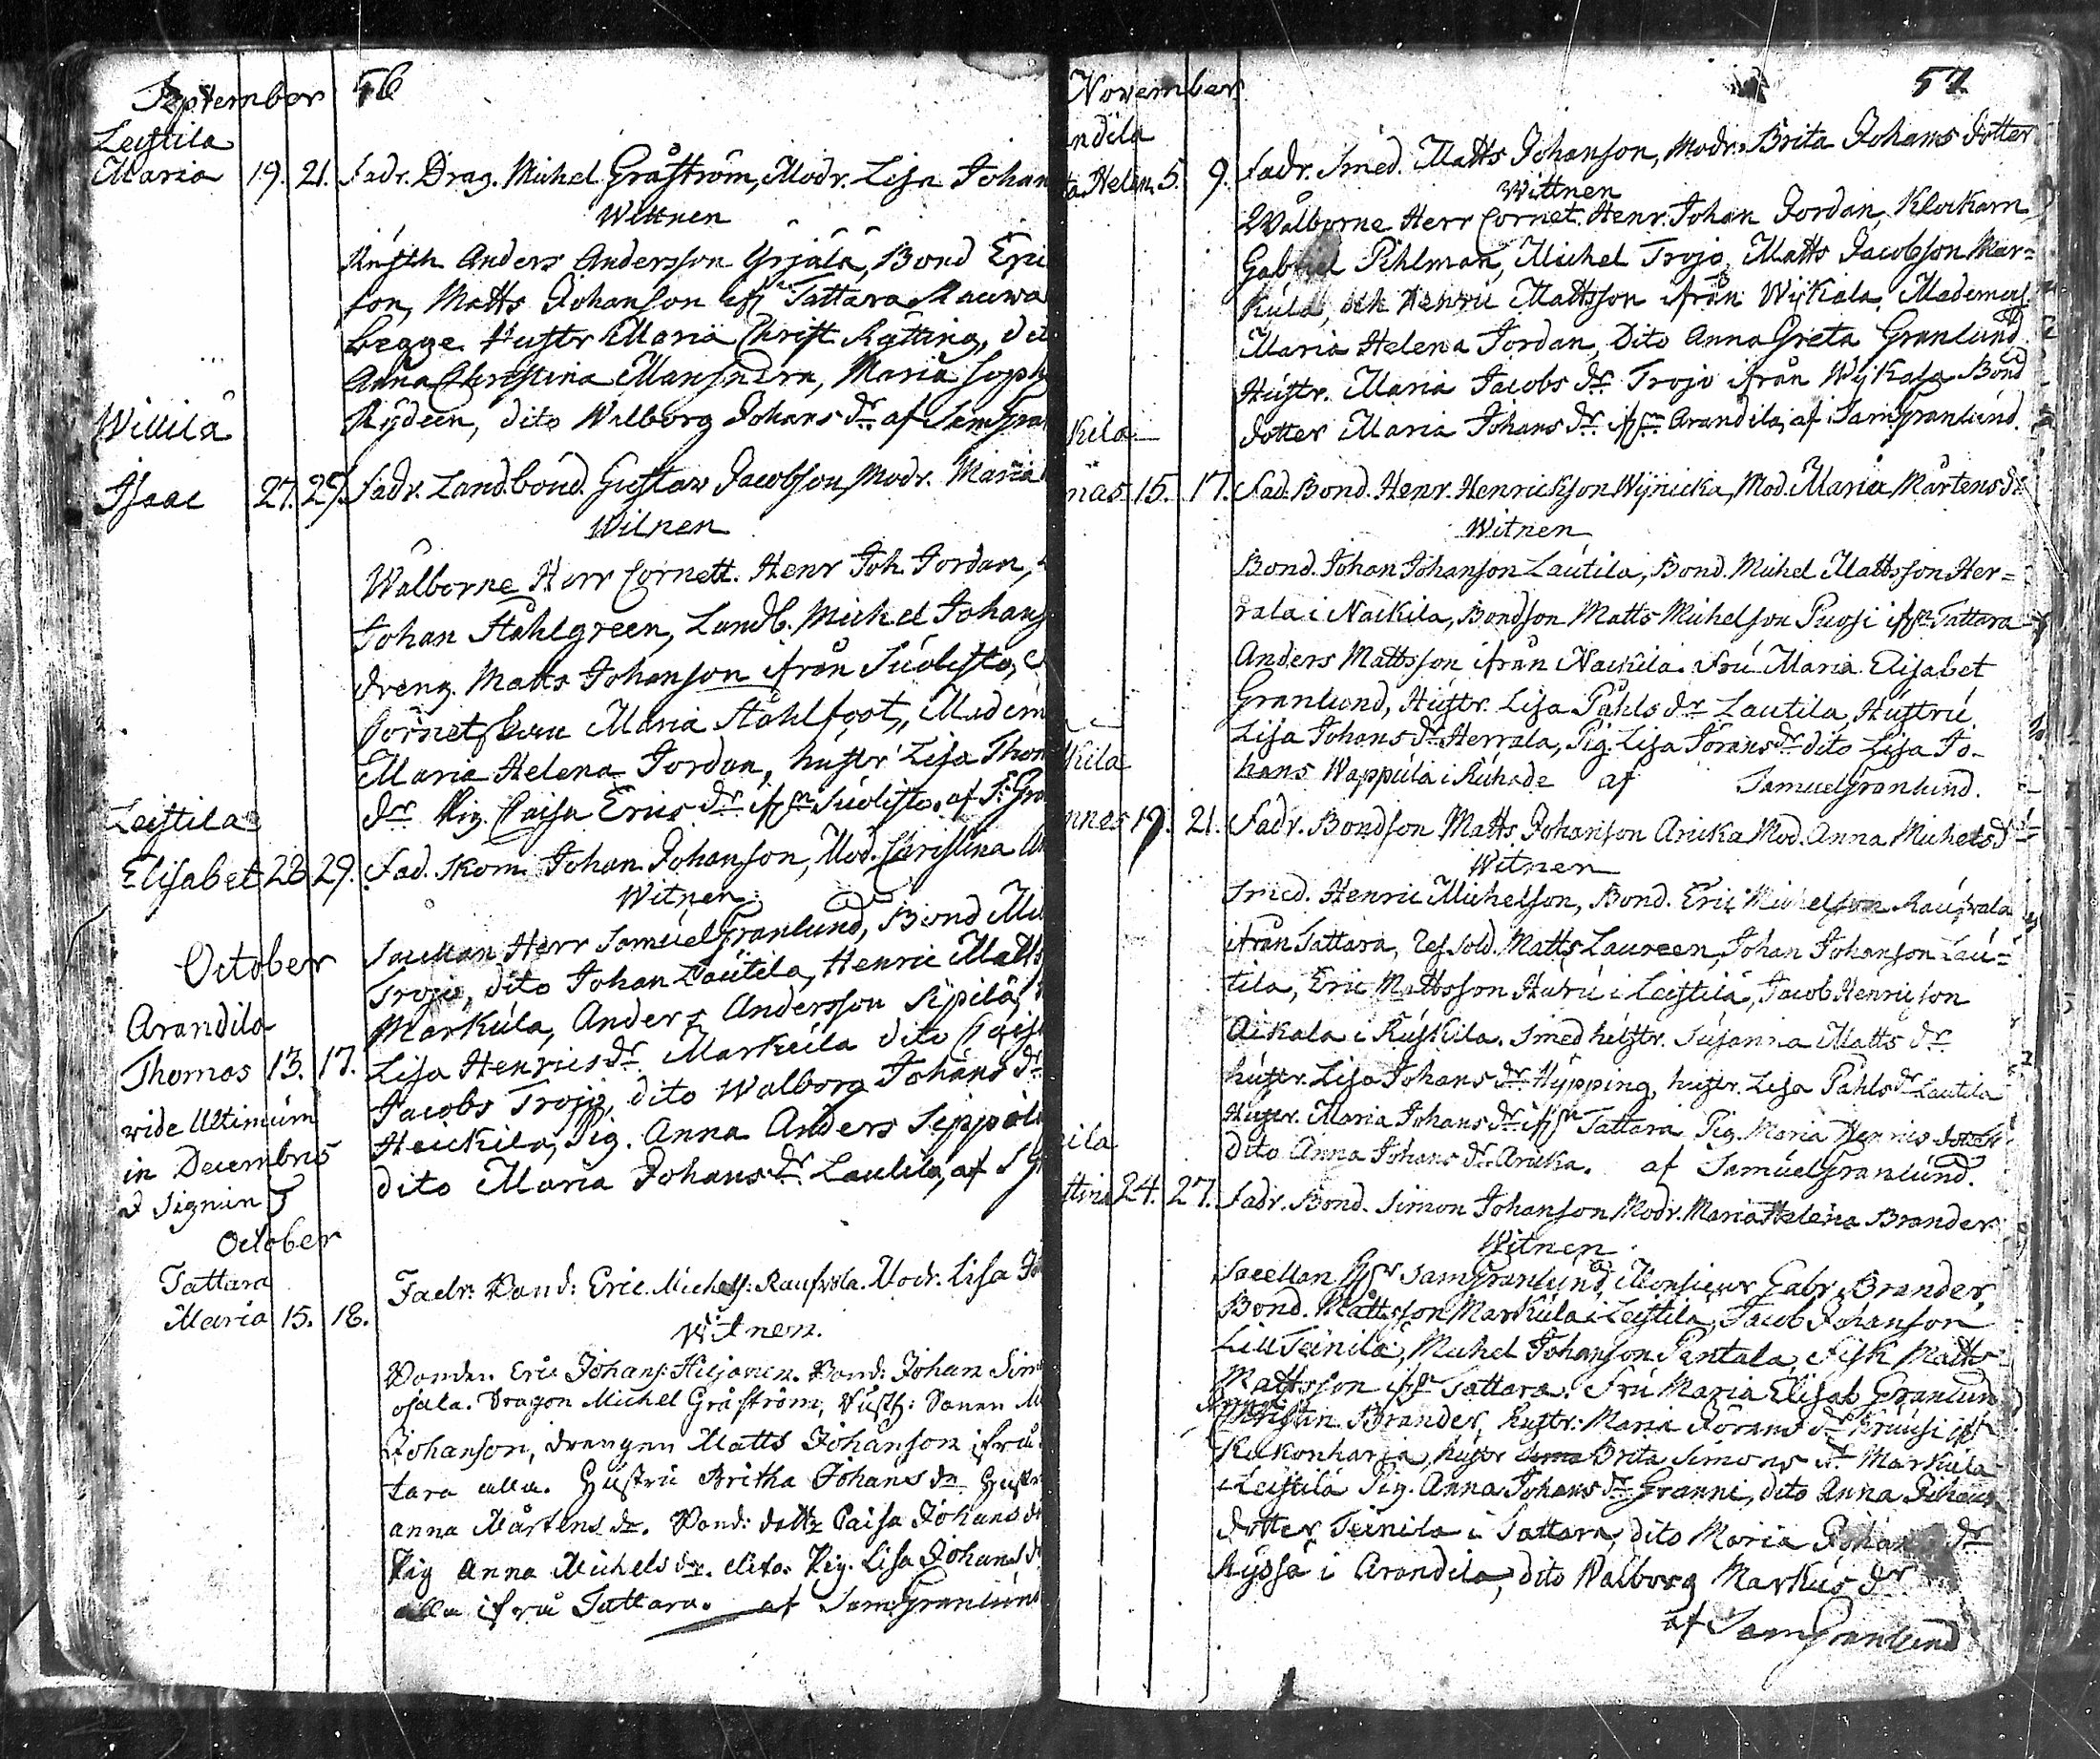 September 56
Leistila
Maria 19. 21. Fadr. Drag. Michel Gråström, Modr. Lisa Johan
Wittnen
Anders Andersson Yrjälä, Bond Eric
son, Matts Johanson Tattara
begge. Hustr Maria Christ
Anna Christina Maria Soph
Rydeen, dito Walborg Johans dr. af Sam Gran
Willila
Isaac 27. 29. Fadr. Landbond. Gustav Jacobson, Modr. Maria
Witnen
Wälborne Herr Cornett. Henr Joh. Jordan,
Johan Ståhlgreen, Landb. Michel Johans
dreng. Matts Johanson ifrån Suolisto,
Maria Stählfoot, Madem
Maria Helena Jordan, hustr Lisa Thom
dr Pig. Caisa Erics dr Suolisto. af S. Gra
Leistila
Elisabet 28 29. Fad. Skom. Johan Johanson, Mod. Christina
Witnen
Sacellan Herr Samuel Granlund, Bond Mi
Trojo, dito Johan Lautila, Henric Matts
Markula, Anders Andersson Sipilä,
Lisa Henrics dr Markula dito
Jacobs Trojo, dito Walborg Johans dr
Heickilä, Pig. Anna Anders Seppälä
dito Maria Johans dr Lautila, af S Gr
October
Arandila
Thomas 13. 17.
vide Ultimum
in Decembris
October
Tattara
Maria 15. 18. Fadr: Bond: Eric Michels: Raufvola. Modr: Lisa Jo
Witnen.
Bonden Eric Johans: Bond: Johan Sim
ojala. Dragon Michel Gråström,
Johanson, drengen Matts Johanson ifrå
tara alla. Hustru Britha Johans dr Hustr
anna Mårtens dr. Bond: dottr Caisa Johans d
Pig Anna Michels dr. dito. Pig. Lisa Johans d
alla ifrå Tattara. af Sam Granlund
November 57
ndila
ta Helen 5. 9. Fadr. Smed. Matts Johanson, Modr. Brita Johans dotter
Wittnen
Wälborne Herr Cornet. Henr. Johan Jordan, Klockarn
Gabriel Pihlman, Michel Trojo, Matts Jacobson Mar=
kula, och Henric Mattsson ifrån Wijkala, Mademois
Maria Helena Jordan, Dito Anna Greta Granlund
Hustr. Maria Jacobs dr Trojo ifrån Wijkala Bond
dotter Maria Johans dr Arandila, af Sam Granlund.
kila
nas 15. 17. Fad. Bond. Henr. Henrickson Wijnicka, Mod. Maria Mårtens dr
Witnen
Bond. Johan Johanson Lautila, Bond. Michel Mattsson Her=
rala i Nackila, Bondson Matts Michelson Tattara
Anders Mattsson ifrån Nackila. Fru Maria Elisabet
Granlund, Hustr. Lisa Påhls dr Lautila, Hustru
Lisa Johans dr Herrala, Pig. Lisa Jörans dr dito Lisa Jo-
hans Wappula i af Samuel Granlund.
kila
nnes 19. 21. Fadr. Bondson Matts. Johanson Aricka Mod. Anna Michels d
Witnen
Smed. Henric Michelson, Bond. Eric Michelson
ifrån Tattara, sold. Matts Laureen, Johan Johanson Lau=
tila, Eric Mattsson i Leistilä, Jacob Henricson
Aikala i Ruskila. Smed hustr. Susanna Matts dr
hustr. Lisa Johans dr Hypping, hustr. Lisa Påhls dr Lautila
Hustr. Maria Johans dr Tattara Pig. Maria Henrics dotter
dito Anna Johans dr Aricka. af Samuel Granlund.
ila
stina 24. 27. Fadr. Bond. Simon Johanson Modr. Maria Helena Brander
Witnen
Sacellan Sam Granlund, Monsieur Gabr. Brander,
Bond. Mattsson Markula i Leistila, Jacob Johanson
Lill Teinilä, Michel Johanson Pentala, Matts
Mattsson Tattara. Fru Maria Elisab Granlund
Christin Brander, hustr: Maria Jörans dr
hustr Brita Simons dr Markula
i Leistilä Pig. Anna Johans dr Granni, dito Anna Johans
dotter Teinila i Tattara, dito Maria dr
Ryssä i Arandila, dito Walborg Markus dr
af Sam Granlund